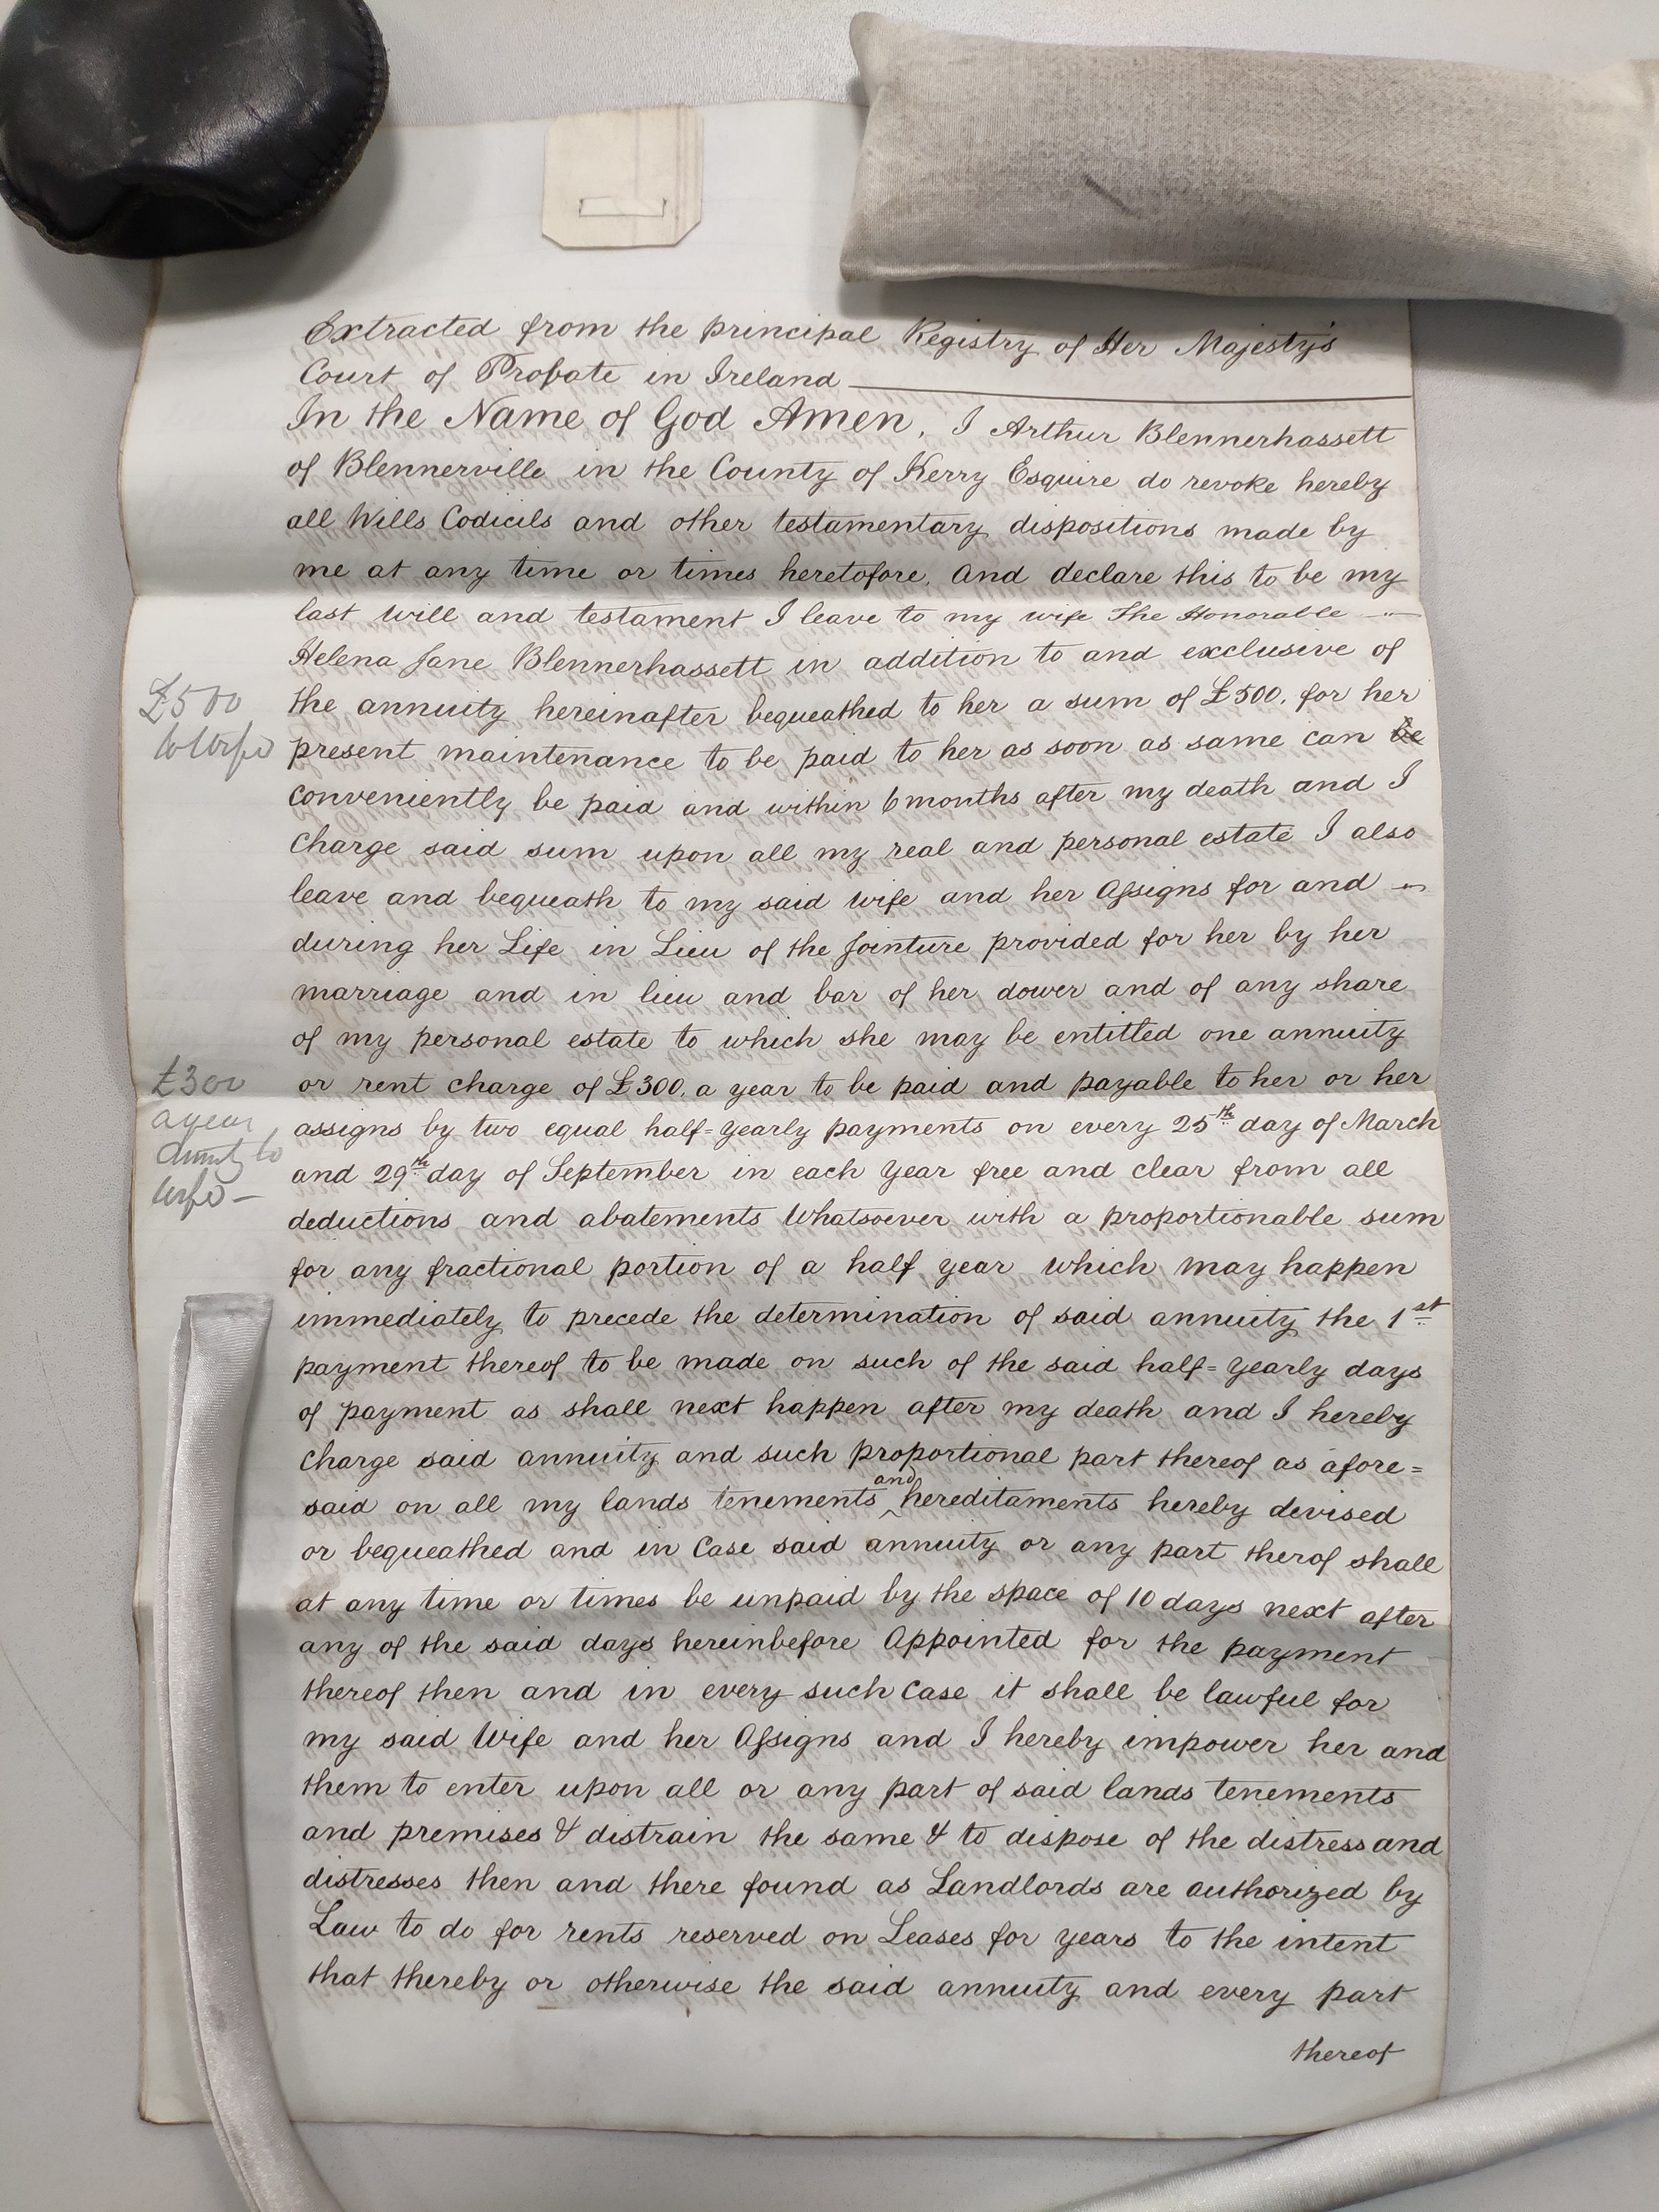 Extracted from the principal Registry of Her Majesty's
Court of Probate in Ireland
In the Name of God Amen, I Arthur Blennerhassett
of Blennerville in the County of Kerry Esquire do revoke hereby
all Wills Codicils and other testamentary dispositions made by
me at any time or times heretofore. And declare this to be my
last will and testament I leave to my wife The Honorable
Helena Jane Blennerhassett in addition to and exclusive of
£500
the annuity hereinafter bequeathed to her a sum of £500. for her
to Wife
present maintenance to be paid to her as soon as same can be
conveniently be paid and within 6 months after my death and I
charge said sum upon all my real and personal estate I also
leave and bequeath to my said wife and her Assigns for and
during her Life in Lieu of the Jointure provided for her by her
marriage and in lieu and bar of her dower and of any share
of my personal estate to which she may be entitled one annuity
£300
or rent charge of £300. a year to be paid and payable to her or her
a year
assigns by two equal half=yearly payments on every 25th day of March
Annuity to
and 29th day of September in each year free and clear from all
Wife —
deductions and abatements Whatsoever with a proportionable sum
for any fractional portion of a half year which may happen
immediately to precede the determination of said annuity the 1st
payment thereof to be made on such of the said half=yearly days
of payment as shall next happen after my death and I hereby
charge said annuity and such proportional part thereof as afore=
said on all my lands tenements and hereditaments hereby devised
or bequeathed and in case said annuity or any part therof shall
at any time or times be unpaid by the space of 10 days next after
any of the said days hereinbefore Appointed for the payment
thereof then and in every such case it shall be lawful for
my said Wife and her Assigns and I hereby impower her and
them to enter upon all or any part of said lands tenements
and premises & distrain the same & to dispose of the distress and
distresses then and there found as Landlords are authorized by
Law to do for rents reserved on Leases for years to the intent
that thereby or otherwise the said annuity and every part
thereof